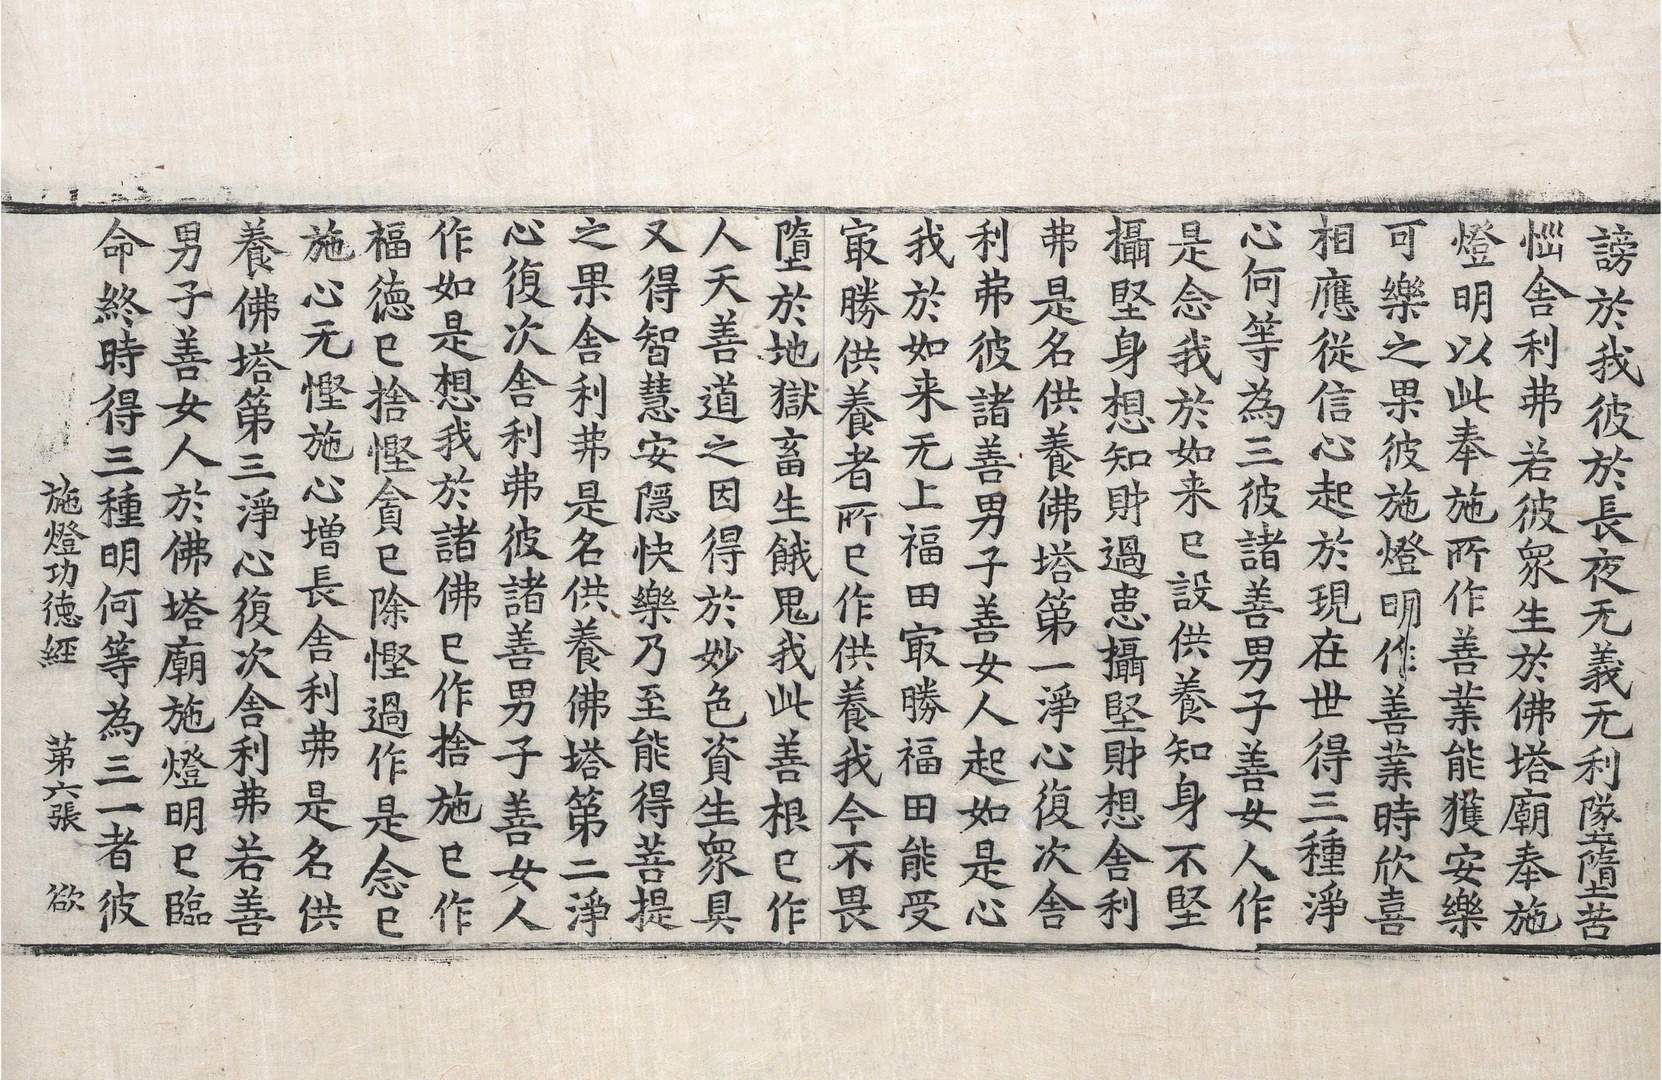 謗於我彼於長夜无義无利墜墮苦
惱舍利弗若彼衆生於佛塔廟奉施
燈明以此奉施所作善業能獲安樂
可樂之果彼施燈明作善業時欣喜
相應從信心起於現在世得三種淨
心何等為三彼諸善男子善女人作
是念我於如来已設供養知身不堅
攝堅身想知財過患攝堅財想舍利
弗是名供養佛塔第一淨心復次舍
利弗彼諸善男子善女人起如是心
我於如来无上福田㝡勝福田能受
㝡勝供養者所已作供養我今不畏
墮於地獄畜生餓鬼我此善根已作
人天善道之因得於妙色資生衆具
又得智慧安隱快樂乃至能得菩提
之果舍利弗是名供養佛塔第二淨
心復次舍利弗彼諸善男子善女人
作如是想我於諸佛已作捨施已作
福德已捨慳貪已除慳過作是念已
施心无慳施心增長舍利弗是名供
養佛塔第三淨心復次舍利弗若善
男子善女人於佛塔廟施燈明已臨
命終時得三種明何等為三一者彼
施燈功德經 第六張 欲